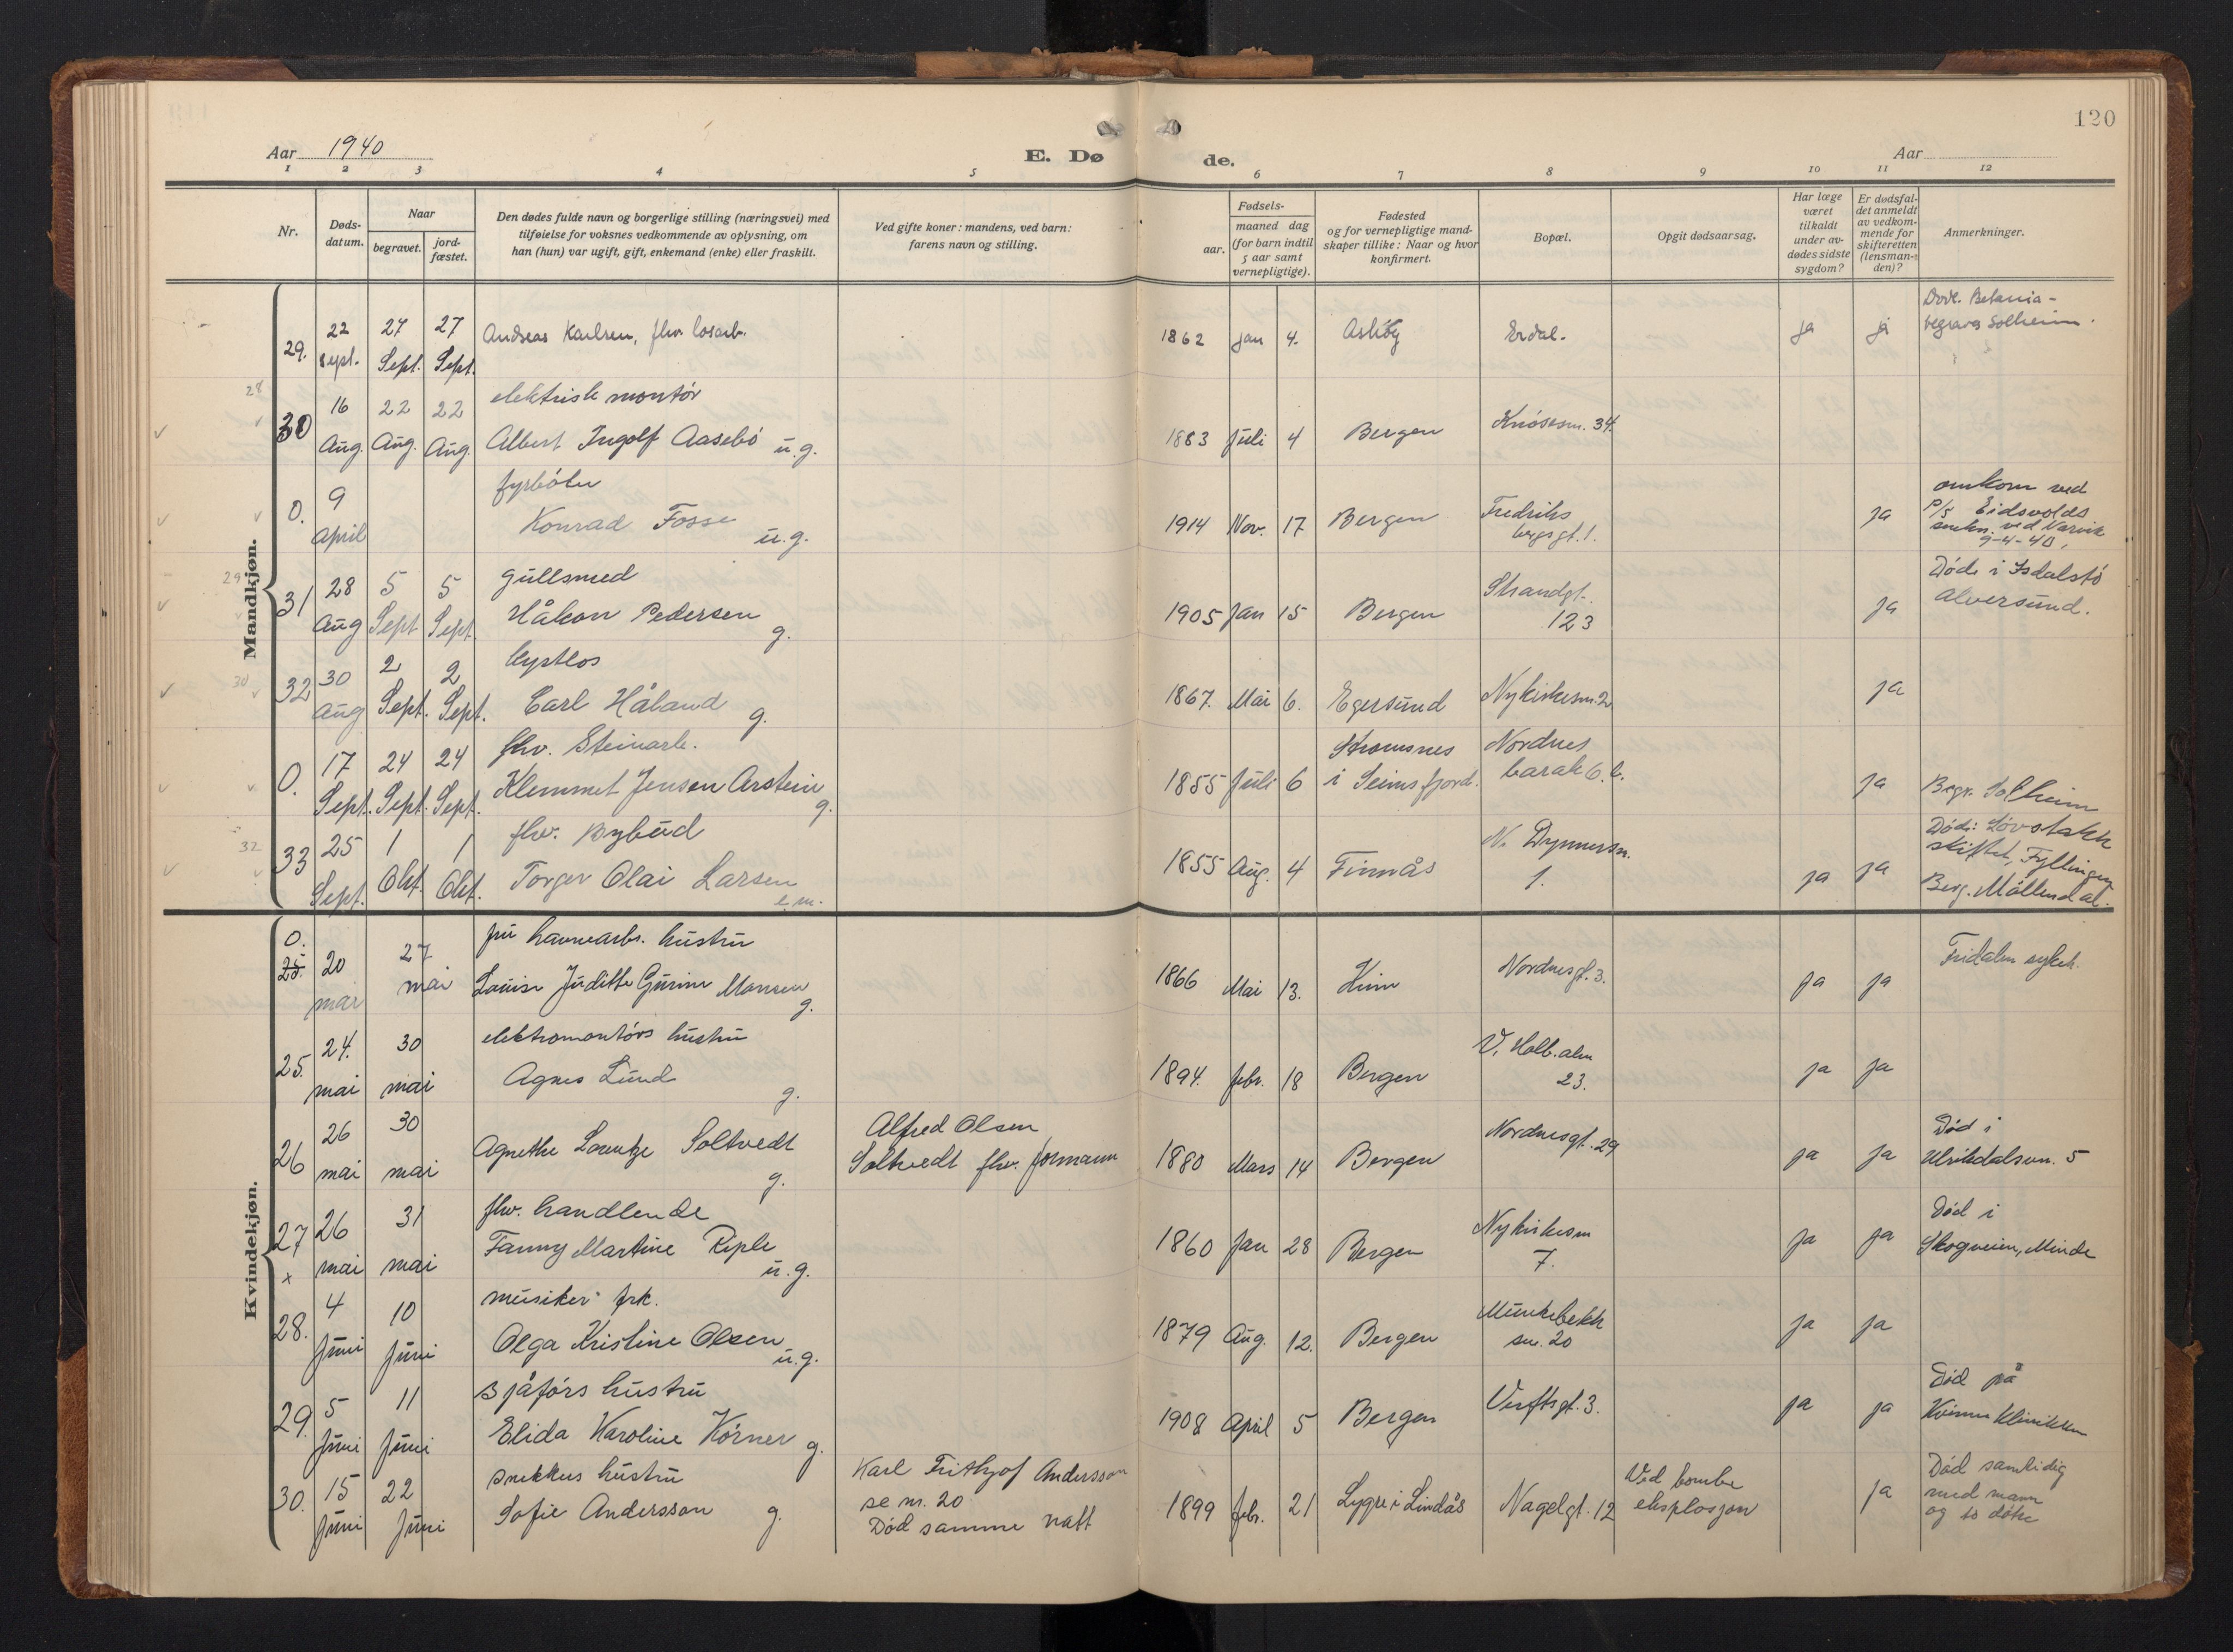 120
Aar 1940
E. Dø de.
Aar
1 2 3 4 5 6 7 8 9 10 11 12
Nr.
Døds-
datum.
Naar
begravet.
jord-
fæstet.
Den dødes fulde navn og borgerlige stilling (næringsvei) med
tilføielse for voksnes vedkommende av oplysning, om
han (hun) var ugift, gift, enkemand (enke) eller fraskilt.
Ved gifte koner: mandens, ved barn:
farens navn og stilling.
Fødsels-
aar.
maaned dag
(for barn indtil
5 aar samt
vernepligtige).
Fødested
og for vernepligtige mand-
skaper tillike: Naar og hvor
konfirmert.
Bopæl.
Opgit dødsaarsag.
Har læge
været
tilkaldt
under av-
dødes sidste
sygdom?
Er dødsfal-
det anmeldt
av vedkom-
mende for
skifteretten
(lensman-
den)?
Anmerkninger.
Mandkjøn.
29. 22 sept. 27 Sept. 27 Sept.
Andreas Karlsen, fhv. losarb.
1862 Jan 4. Askøy Erdal. ja ja
Betania -
begraves Solheim.
28
30 16 Aug. 22 Aug. 22 Aug.
elektrisk montör
Albert Ingolf Aasebö u.g.
1883 Juli 4 Bergen Knösesm. 34.
0. 9 April
fyrböter
Konrad Fosse u.g.
1914 Nov. 17 Bergen
Fredriks
bergsgt. 1.
ja
omkom ved
P/S Eidsvolds
senkn. ved Narvik
9-4-40.
29
31 28 Aug 5 Sept 5 Sept.
gullsmed
Håkon Pedersen g.
1905 Jan 15 Bergen
Strandgt.
123
ja
Död i Isdalstö
Alversund.
30
32 30 Aug 2 Sept. 2 Sept.
kystlos
Carl Håland g.
1867. Mai 6. Egersund Nykirkesm. 2 ja
0. 17 Sept. 24 Sept. 24 Sept.
fhv. Steinarb.
Klemmet Jensen Arstein g.
1855 Juli 6
Stromsnes
i Seimsfjord.
Nordnes
barak 6. b.
ja
Begr. Solheim
32
33 25 Sept. 1 Okt. 1 Okt.
fhv. Bybud
Torger Olai Larsen e.m.
1855 Aug. 4 Finnås
N. Dynnersm.
1.
ja ja
Död: Lövstakk
skiftet, Fyllingen
Berg. Möllendal.
Kvindekjøn.
0.
25. 20 mai 27 mai
fru havnearbs. hustru
Louise Juditte Gurine Monsen g.
1866 Mai 13. Kinn Nordnesgt. 3. ja ja
Fridalen sykeh.
25. 24. mai 30 mai
elektromontörs hustru
Agnes Lund g.
1894. febr. 18 Bergen
V. Holb. alm
23.
ja ja
26 26 mai 30 mai
Agnethe Lorentze Soltvedt g.
Alfred Olsen
Soltvedt fhv. formann
1880 Mars 14 Bergen Nordnesgt. 29 ja ja
Död i
Ulrikdalsvn. 5
27 x 26 mai 31 mai
fhv. handlende
Fanny Martine Riple u.g.
1860 Jan 28 Bergen
Nykirkesm
7.
ja ja
Död i
Skogveien, Minde
28. 4 Juni 10 Juni
musiker frk.
Olga Kristine Olsen u.g.
1879 Aug. 12. Bergen
Munkebekk
sm. 20
ja ja
29. 5 Juni 11 Juni
sjåförs hustru
Elida Karoline Körner g.
1908 April 5 Bergen Verftsgt. 3. ja ja
Död på
Kvinneklinikken
30. 15 Juni 22 Juni
snekkers hustru
Sofie Andersson g.
Karl Frithjof Andersson
se nr. 20
Död samme natt
1899 febr. 21 Lygre i Lindås Nagelgt. 12
Ved bombe
eksplosjon
ja
Död samtidig
med mann
og to døtre